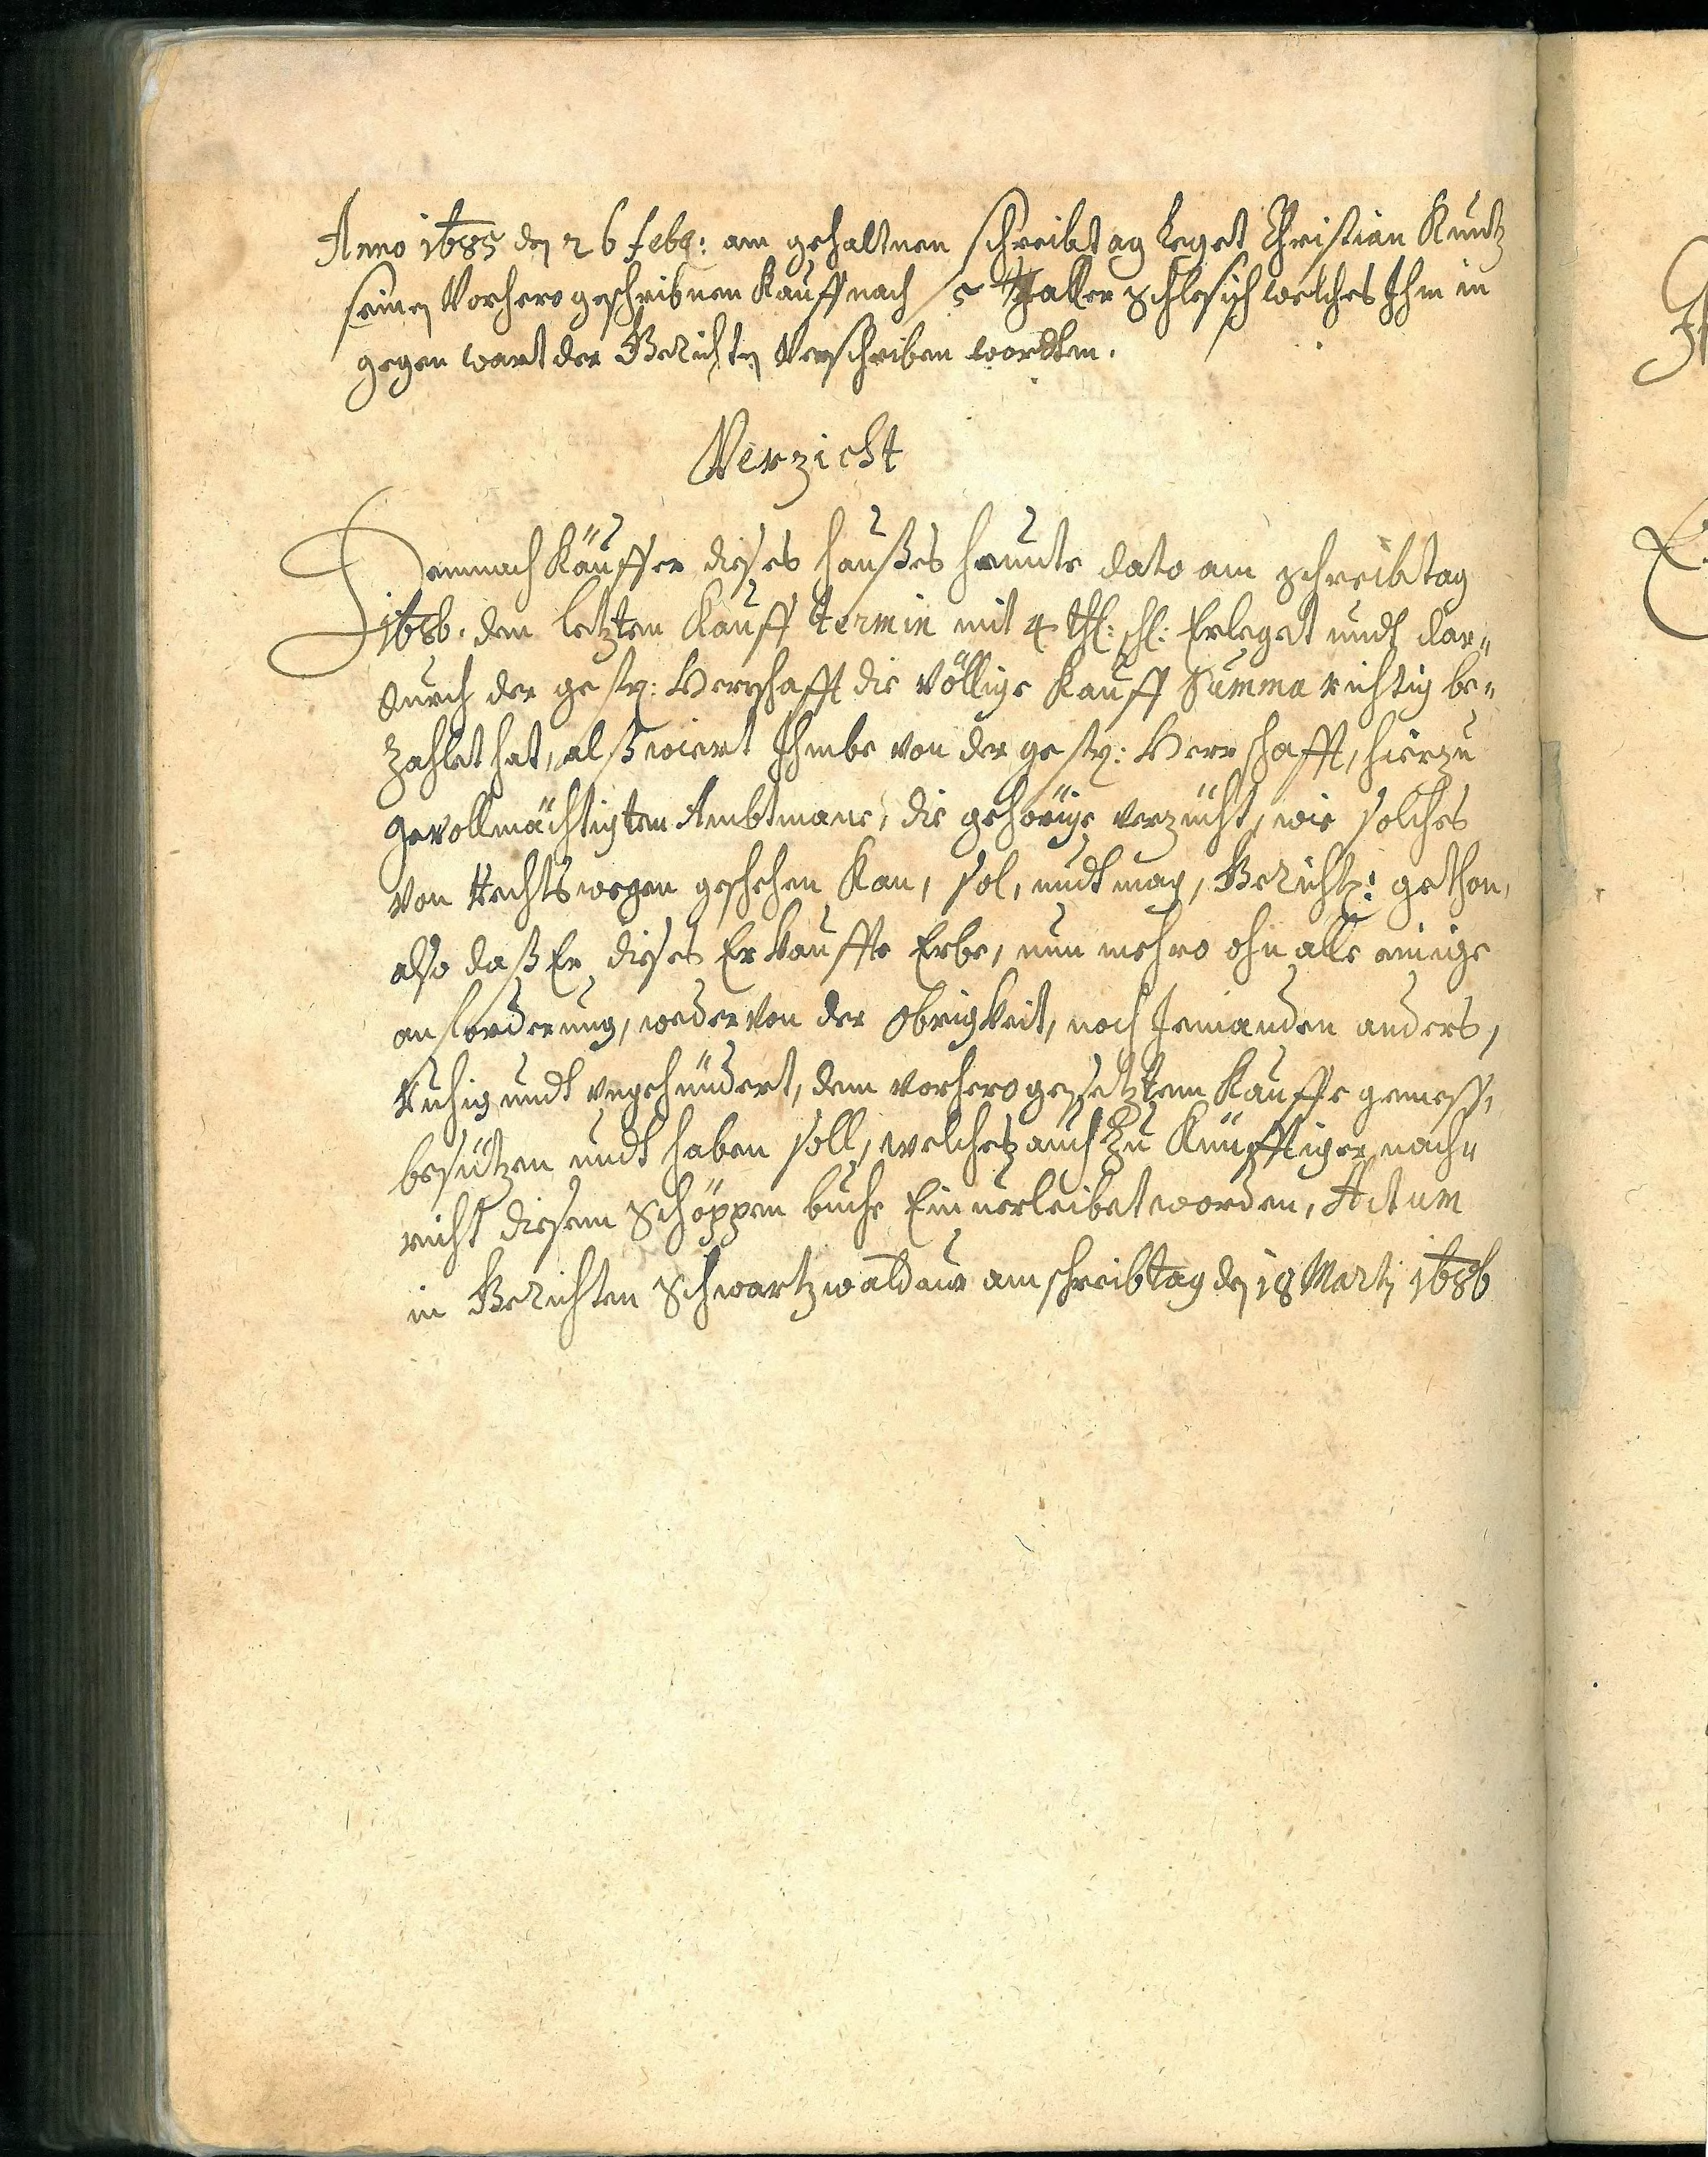 Anno 1685 den 26 febr: am gehaltnen schreibtag leget Christian Kuntz
seinen Vorhero geschribnen Kauff nach 5 Thaller schlesisch welches Ihm in
gegen wart der Gerichten Verschriben wordten.
Verzicht
Demnach Käuffer dieses haußes heunte dato am schreibtag
1686. den letzten Kauff termin mit 4 thl: schl: Erleget undt dar„
durch der gestr: Herrschafft die völlige Kauff Summa richtig be„
zahlet hat, alß wiert Ihmbe von der gestr: Herrschafft, hierzu
gevollmächtigten Ambtmane, die gehörige verzücht, wie solches
von Rechtswegen geschehen Kan, sol, undt mag, Gerichtl: gethon,
also daß Er dieses Erkauffte Erbe, nun mehro ohn alle einige
anforderung, weder von der Obrigkeit, noch Jemanden anders,
Ruhig undt ungehündert, dem vorhero gesetztem Kauffe gemeß,
besützen undt haben soll, welches auch Zu Künfftiger nach„
richt diesem Schöppen buche Einverleibet worden, Actum
in Gerichten Schwartzwaldau am schreibtag den 18 Martj 1686